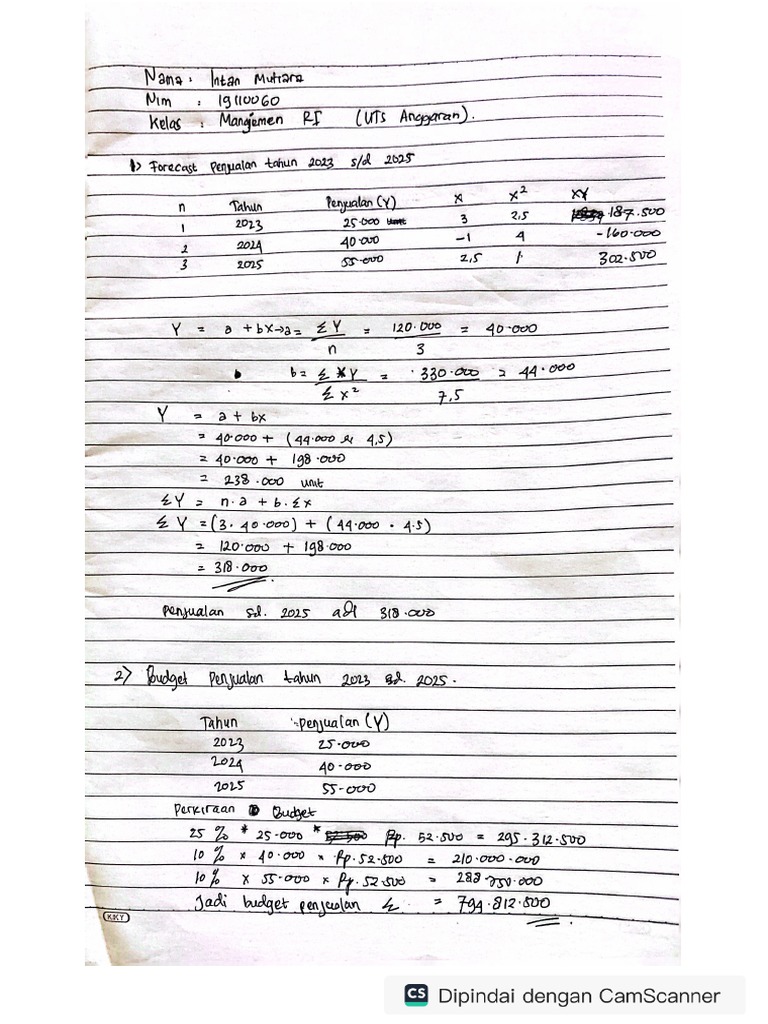 Nama : Intan Mutiara
Nim : 19110060
Kelas : Manajemen RI (UTS Anggaran).
1) Forecast penjualan tahun 2023 s/d 2025
n Tahun Penjualan (Y) x x² xy
1 2023 25.000 3 2,5 187.500
2 2024 40.000 -1 4 -160.000
3 2025 55.000 2,5 1 302.500
Y = a + bx → a = ΣY / n = 120.000 / 3 = 40.000
b = ΣXY / Σx² = 330.000 / 7,5 = 44.000
Y = a + bx
= 40.000 + (44.000 x 4,5)
= 40.000 + 198.000
= 238.000 unit
ΣY = n.a + b.Σx
ΣY = (3. 40.000) + (44.000 . 4.5)
= 120.000 + 198.000
= 318.000
Penjualan sd. 2025 adl 318.000
2) Budget penjualan tahun 2023 sd. 2025.
Tahun penjualan (Y)
2023 25.000
2024 40.000
2025 55.000
Perkiraan Budget
25 % * 25.000 * Rp. 52.500 = 295.312.500
10 % x 40.000 x Rp. 52.500 = 210.000.000
10 % x 55.000 x Rp. 52.500 = 288.750.000
Jadi budget penjualan Σ = 794.812.500
KKY
CS Dipindai dengan CamScanner